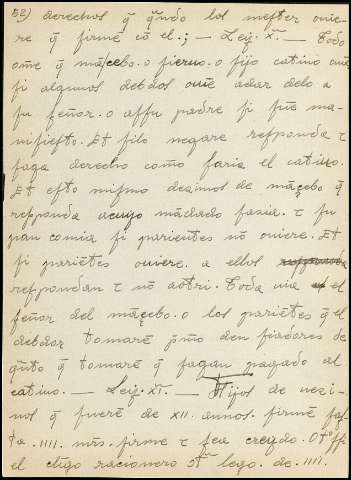 52) derechos q̃ q̃ndo los mester ouie-
re q̃ firmẽ cõ el.; — Ley. x.ª — Todo
ome q̃ mãcebo. o sieruo. o fijo catiuo ouiẽ
si algunos debdos ouiẽ a dar delo a
su señor. o assu padre si fuẽ ma-
nifiesto. Et silo negare responda τ
faga derecho como faria el catiuo.
Et esto mismo dezimos de mãcebo q̃
responda a cuyo mãdado fazia. τ su
pan comia si parientes nõ ouiere. Et
si pariẽtes ouiere. a ellos
respondan τ nõ aotri. Toda uia el
señor del mãcebo. o los pariẽtes q̃ el
debdor tomarẽ pm̃o den fiadores de
q̃nto q̃ tomarẽ q̃ fagan pagado al
catiuo. — Ley. xi. — Fijos de uezi-
nos q̃ fuerẽ de XII. annos. firmẽ fas-
ta .IIII. mr̃s. firme τ sea creydo. Otossi
el cligo racionero o lego. de .IIII.